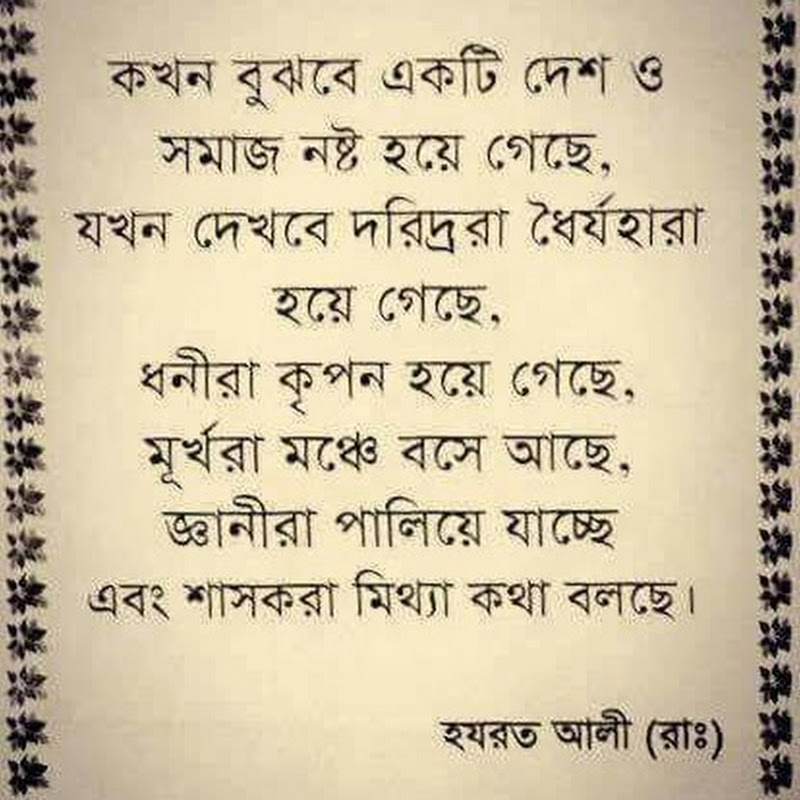 কখন বুঝবে একটি দেশ ও
সমাজ নষ্ট হয়ে গেছে,
যখন দেখবে দরিদ্ররা ধৈর্যহারা
হয়ে গেছে,
ধনীরা কৃপন হয়ে গেছে,
মূর্খরা মঞ্চে বসে আছে,
জ্ঞানীরা পালিয়ে যাচ্ছে
এবং শাসকরা মিথ্যা কথা বলছে।
হযরত আলী (রাঃ)